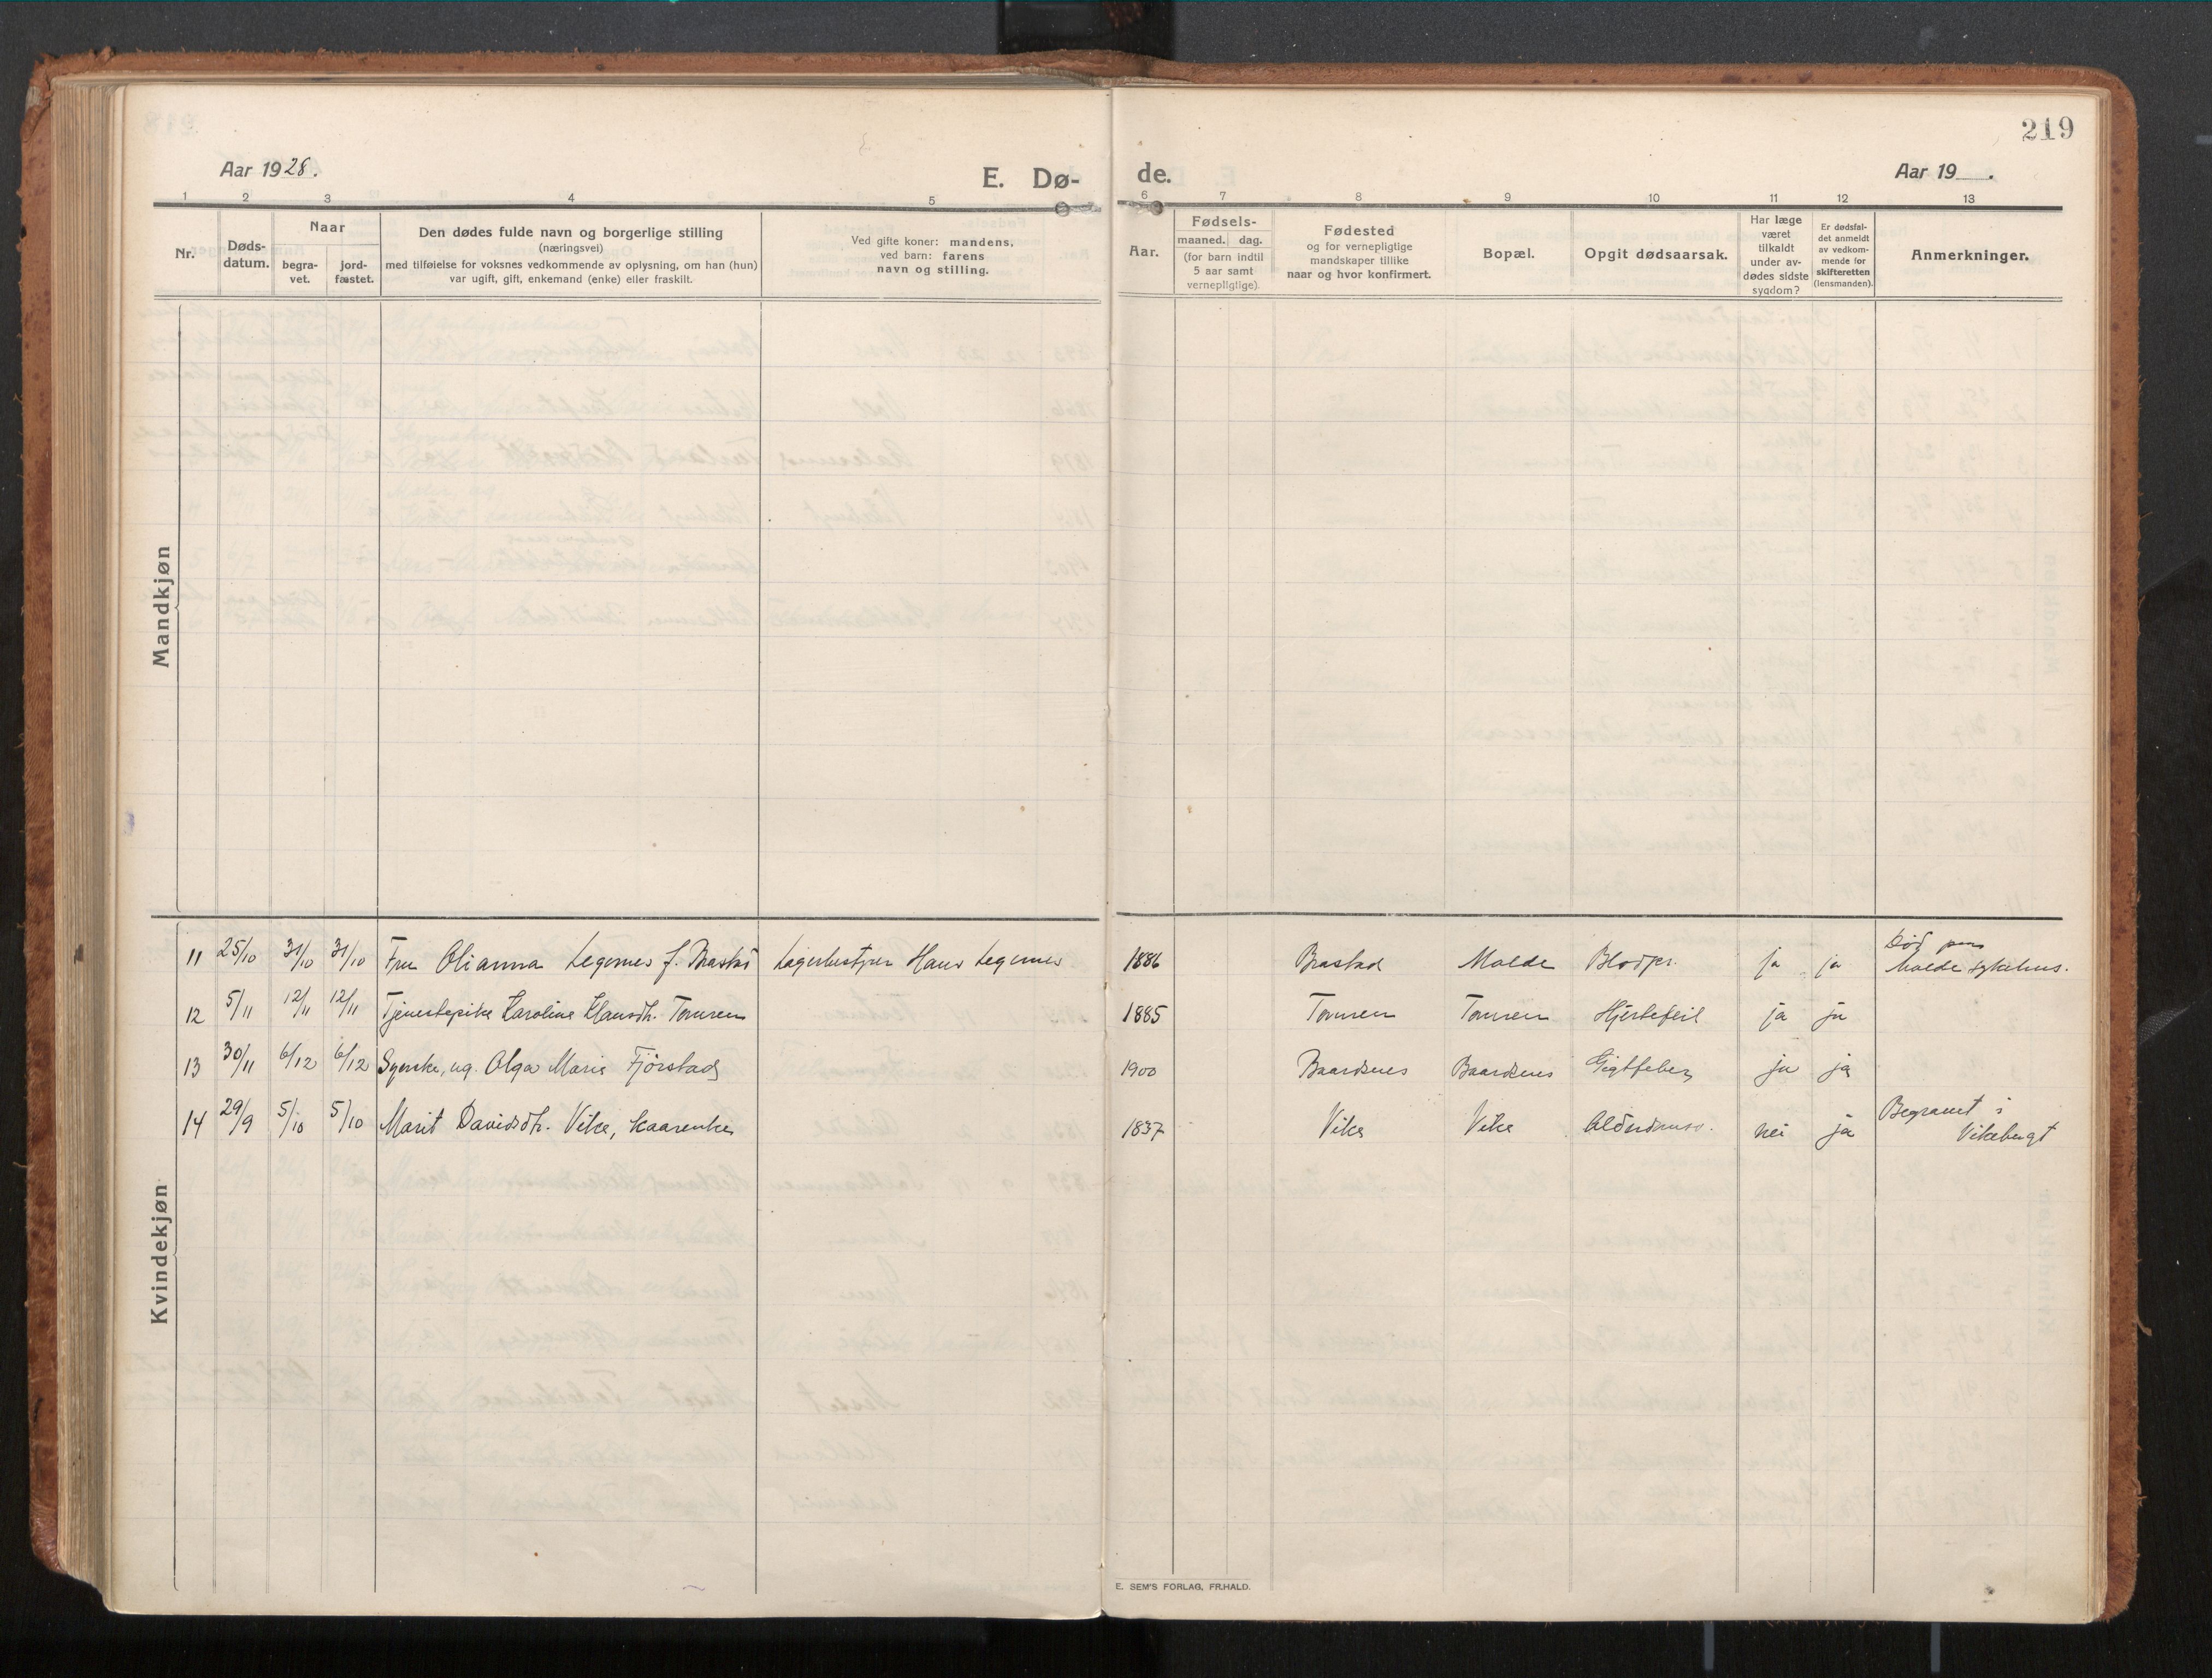 219
Aar 1928.
E. Dø-
de.
Aar 19 .
1 2 3 4 5 6 7 8 9 10 11 12 13
Nr.
Døds-
datum.
Naar
begra-
vet.
jord-
fæstet.
Den dødes fulde navn og borgerlige stilling
(næringsvei)
med tilføielse for voksnes vedkommende av oplysning, om han (hun)
var ugift, gift, enkemand (enke) eller fraskilt.
Ved gifte koner: mandens,
ved barn: farens
navn og stilling.
Aar.
Fødsels-
maaned. dag.
(for barn indtil
5 aar samt
vernepligtige).
Fødested
og for vernepligtige
mandskaper tillike
naar og hvor konfirmert.
Bopæl.
Opgit dødsaarsak.
Har læge
været
tilkaldt
under av-
dødes sidste
sygdom?
Er dødsfal-
det anmeldt
av vedkom-
mende for
skifteretten
(lensmanden).
Anmerkninger.
Mandkjøn
Kvindekjøn
11 25/10 31/10 31/10 Fru Olianna Legernes f. Brastad Lagerbestyrer Hans Legernes 1886 Brastad Molde Blodpr. ja ja Død paa
Molde sykehus.
12 5/11 12/11 12/11 Tjenestepike Karoline Hansdtr. Tomren 1885 Tomren Tomren Hjertefeil ja ja
13 30/11 6/12 6/12 Syerske, ug. Olga Marie Fjørstad 1900 Baardsnes Baardsnes Gigtfeber ja ja
14 29/9 5/10 5/10 Marit Davidsdtr. Vike, kaarenke 1837 Vike Vike Alderdomss. nei ja Begravet i
Vikebugt
E. SEM'S FORLAG, FR.HALD.